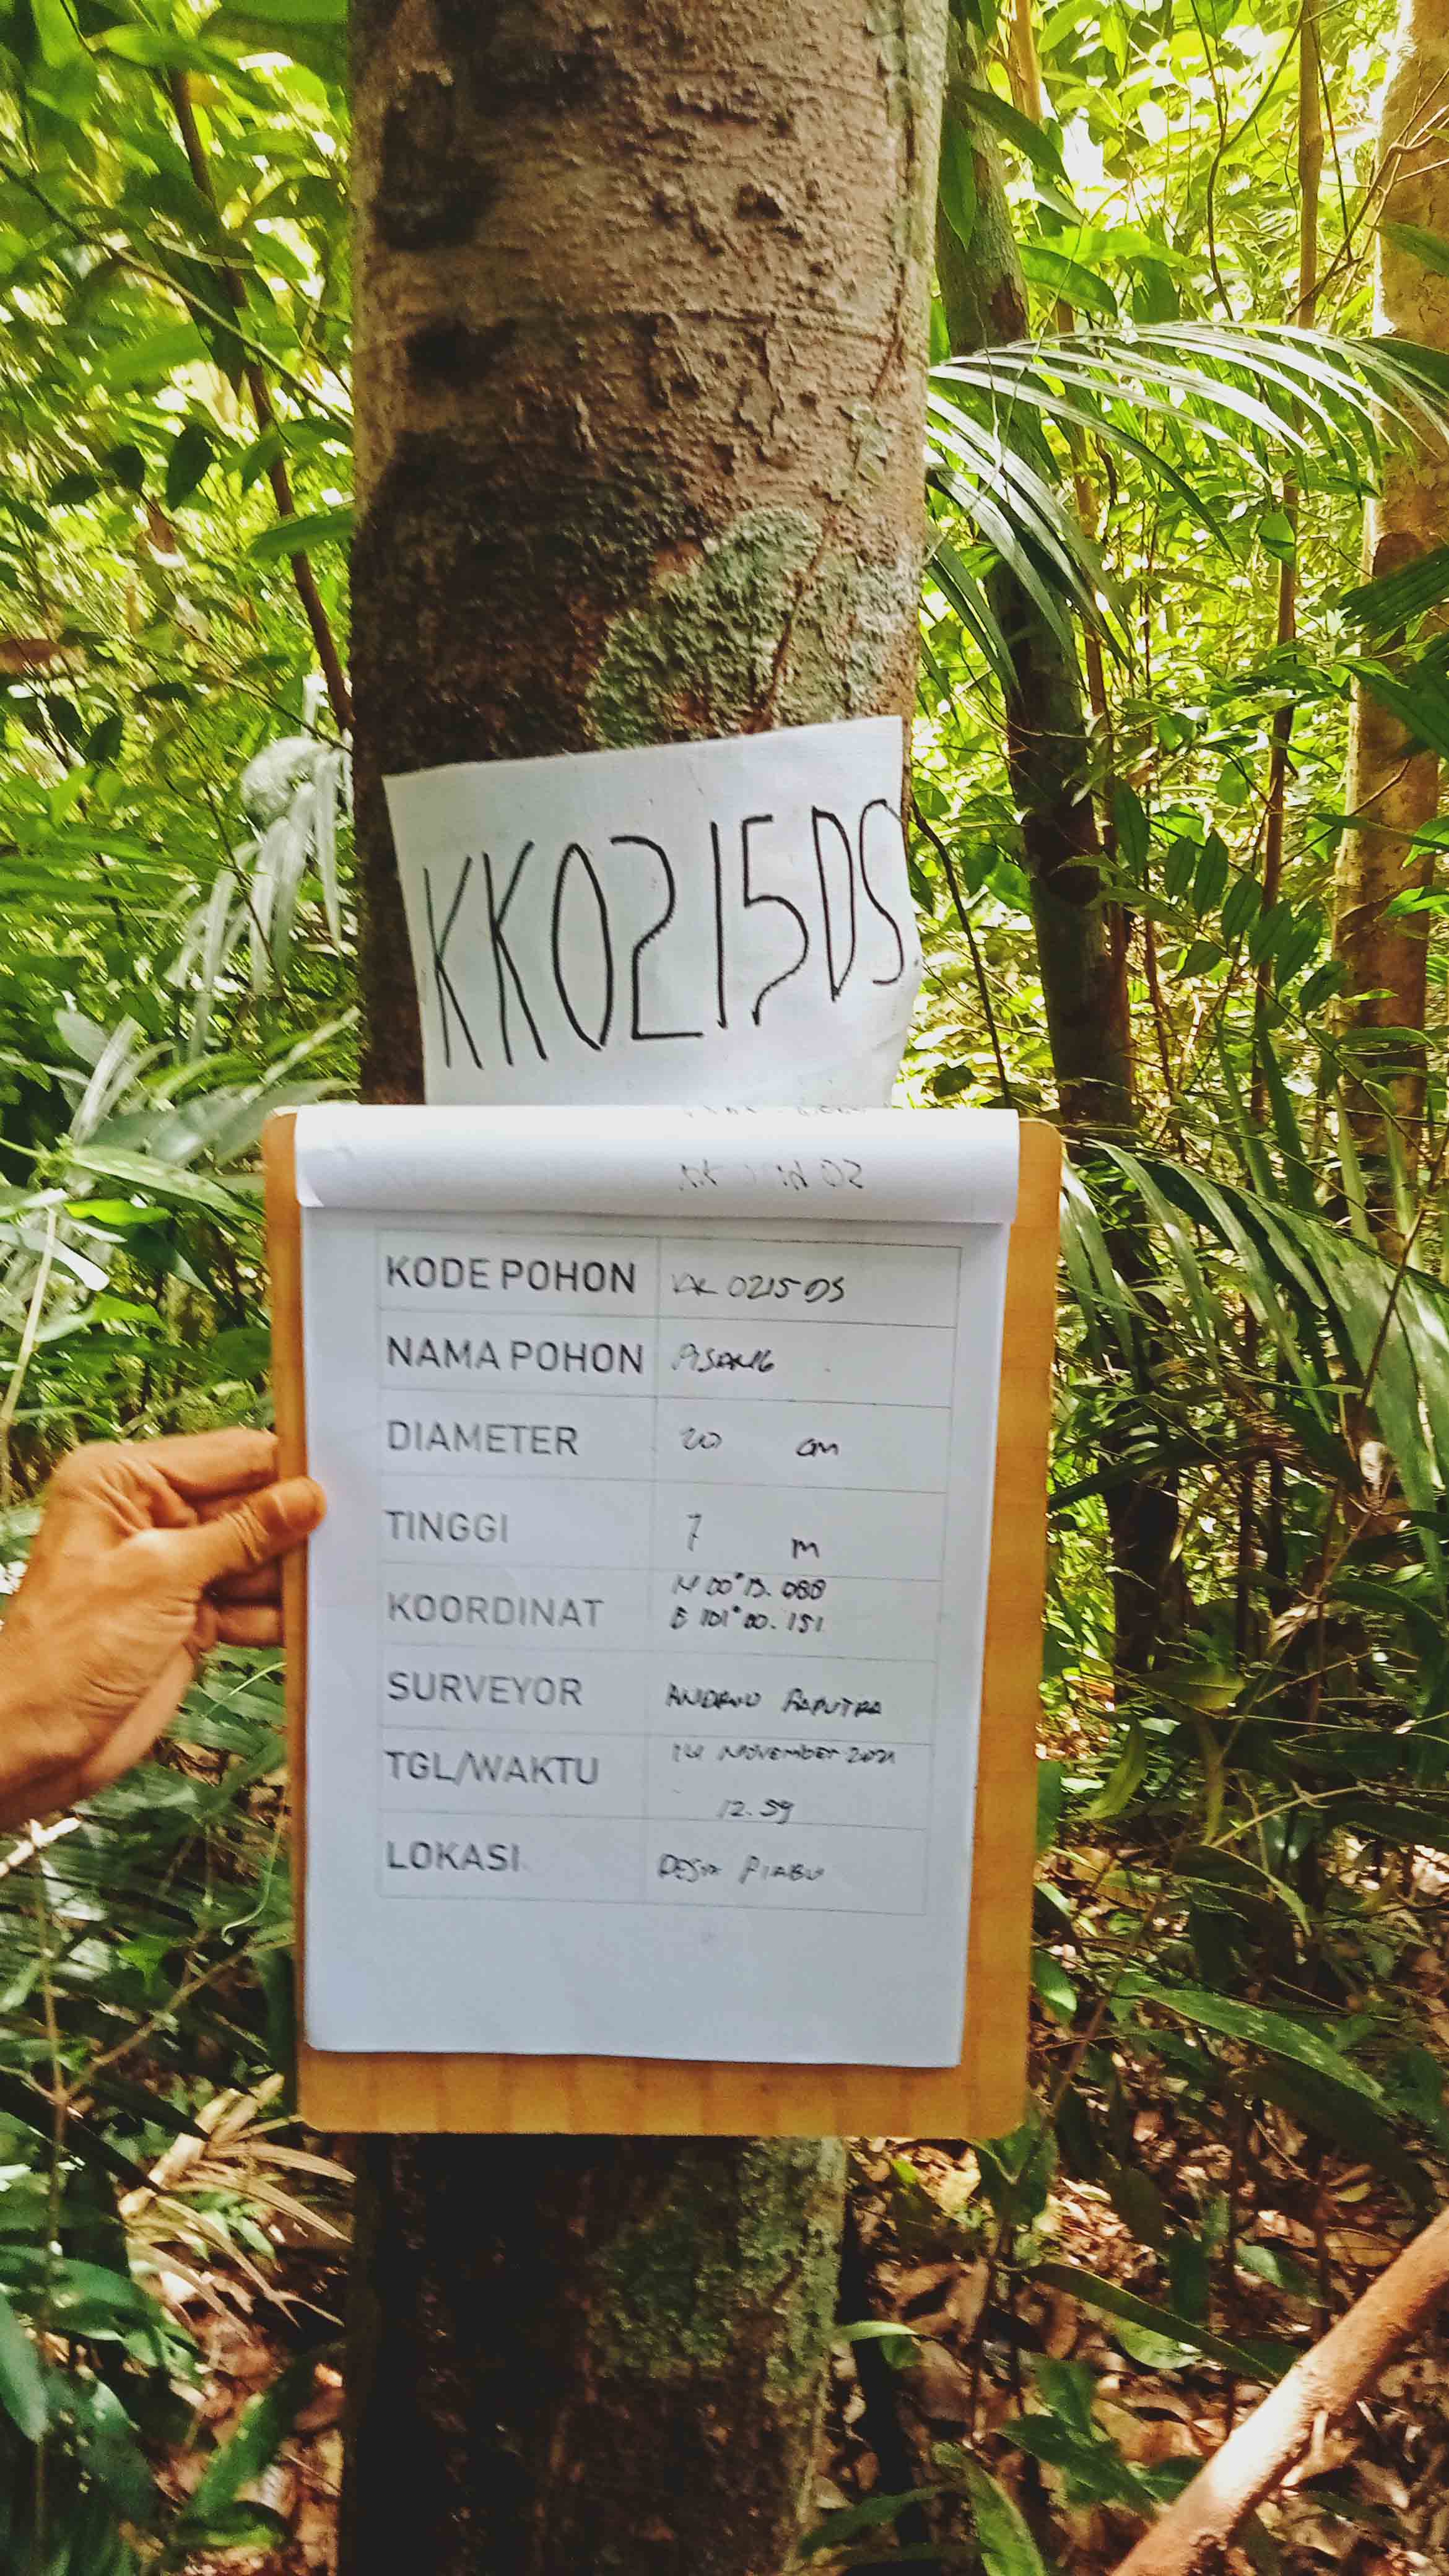 KK0215DS
KODE POHON KK 0215 DS
NAMA POHON PISANG
DIAMETER 20 cm
TINGGI 7 m
KOORDINAT N 00° 13. 088
E 101° 00. 151
SURVEYOR SAPUTRA
TGL/WAKTU 14 NOVEMBER 2021
12.59
LOKASI DESA PIABU